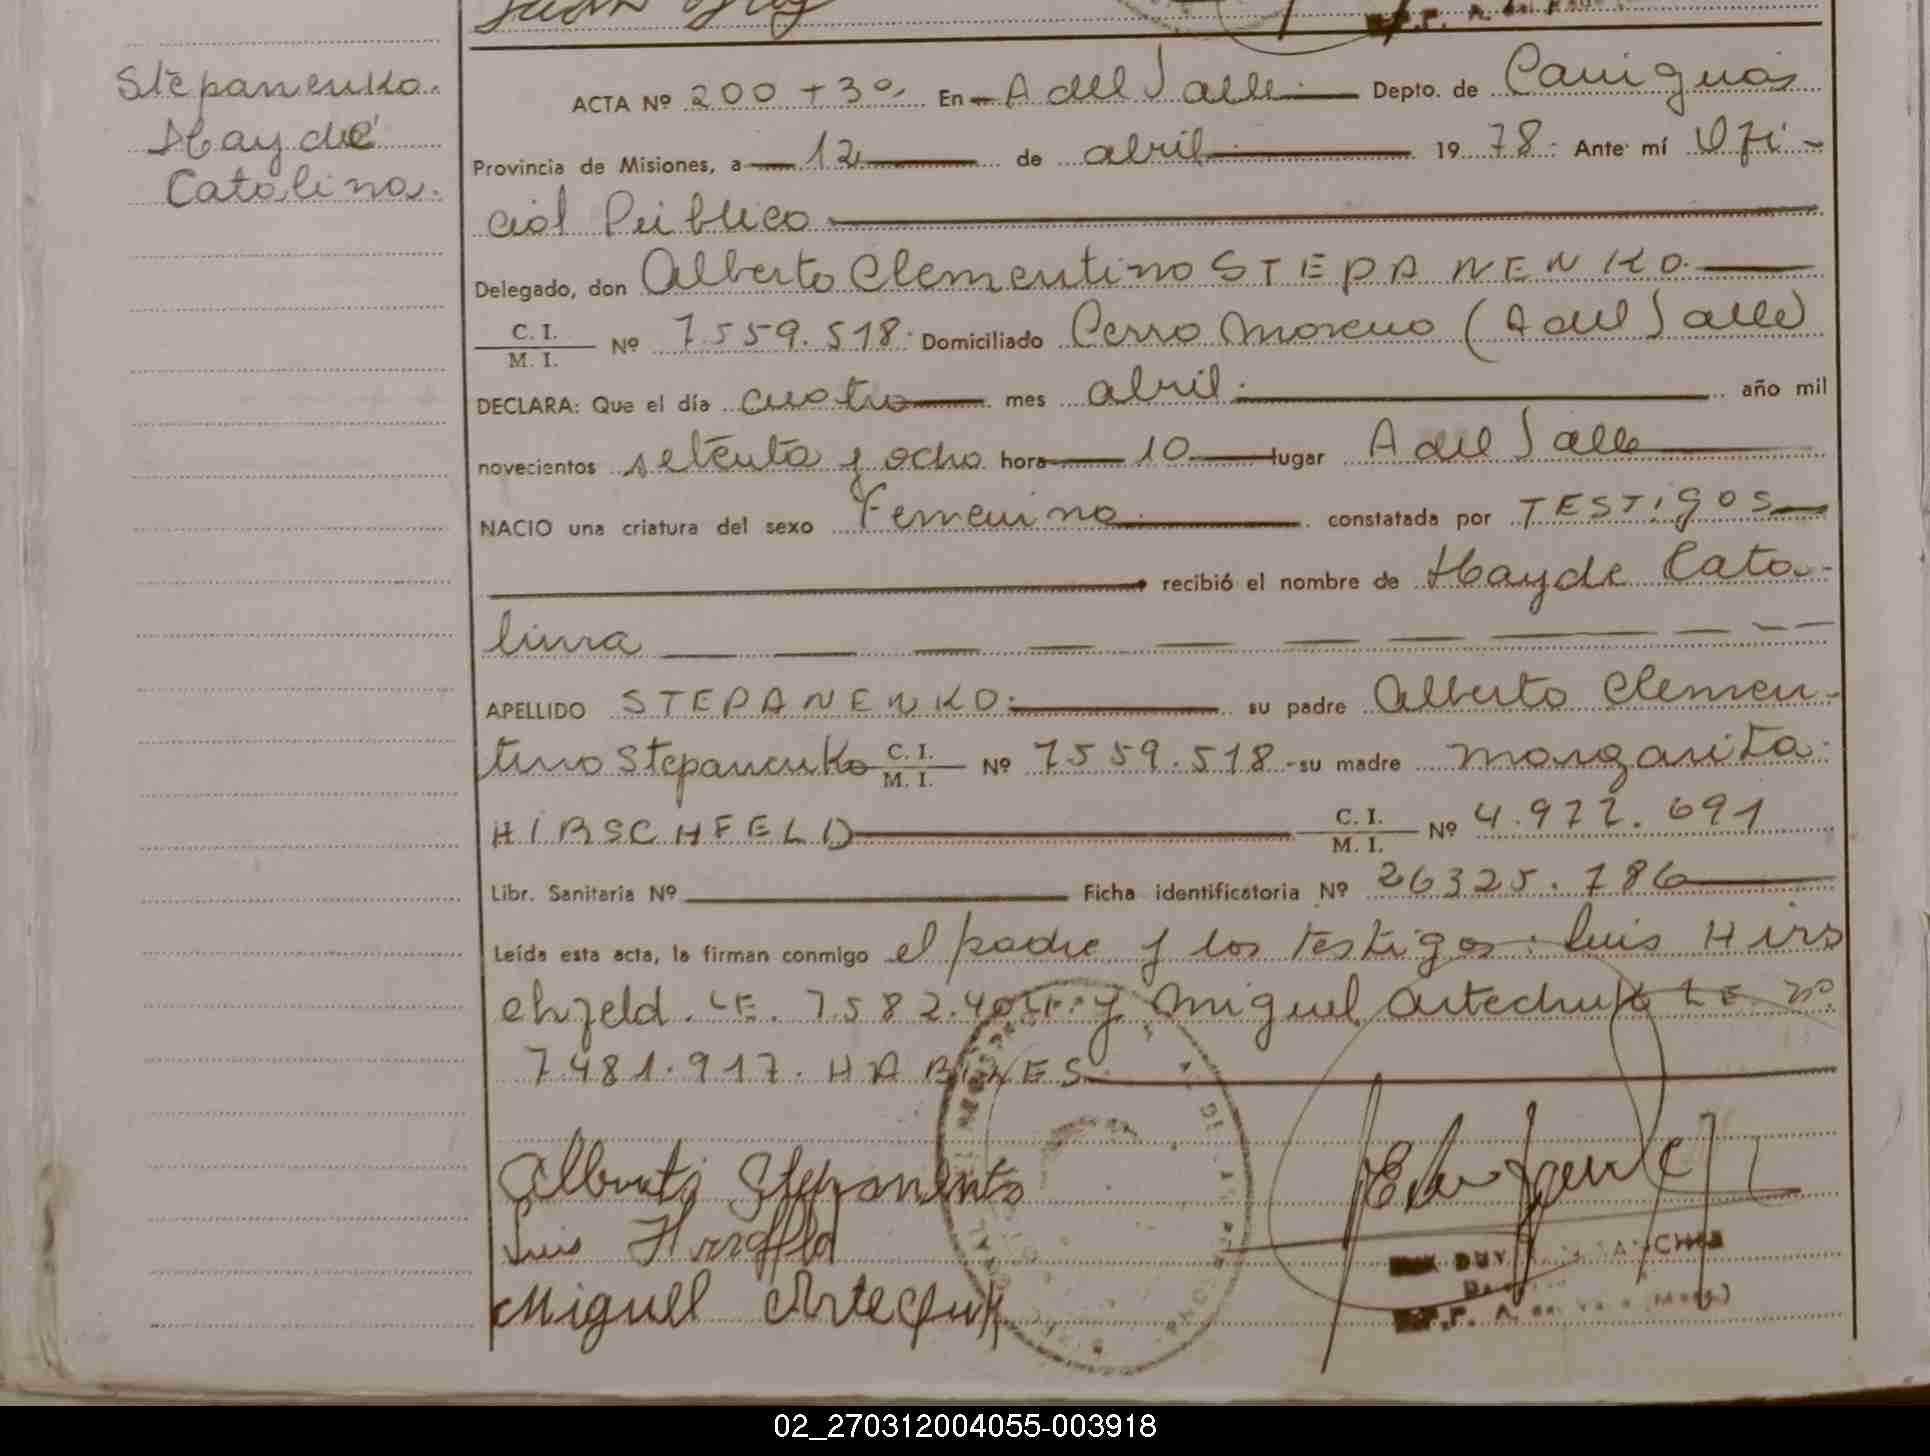 Stepanenko.
Haydé
Catalina.
ACTA Nº 200 + 3º En A del Valle Depto. de Cainguás
Provincia de Misiones, a 12 de abril 19 78. Ante mí Ofi-
cial Público
Delegado, don Alberto Clementino STEPANENKO.
C. I.
M. I. Nº 7.559.518. Domiciliado Cerro Moreno (A del Valle)
DECLARA: Que el día cuatro mes abril. año mil
novecientos setenta y ocho hora 10 lugar A del Valle
NACIO una criatura del sexo Femenino constatada por TESTIGOS
recibió el nombre de Hayde Cata-
lina
APELLIDO STEPANENKO. su padre Alberto Clemen-
tino Stepanenko C. I.
M. I. Nº 7559.518 su madre Margarita
HIRSCHFELD C. I.
M. I. Nº 4.972.691
Libr. Sanitaria Nº Ficha identificatoria Nº 26325.786
Leída esta acta, la firman conmigo el padre y los testigos: Luis Hirs
chfeld. LE. 7.582. y Miguel Artechuk LE. nº
7.481.917. HABILES
Alberto Stepanenko
Luis
Miguel Artechuk
02_270312004055-003918